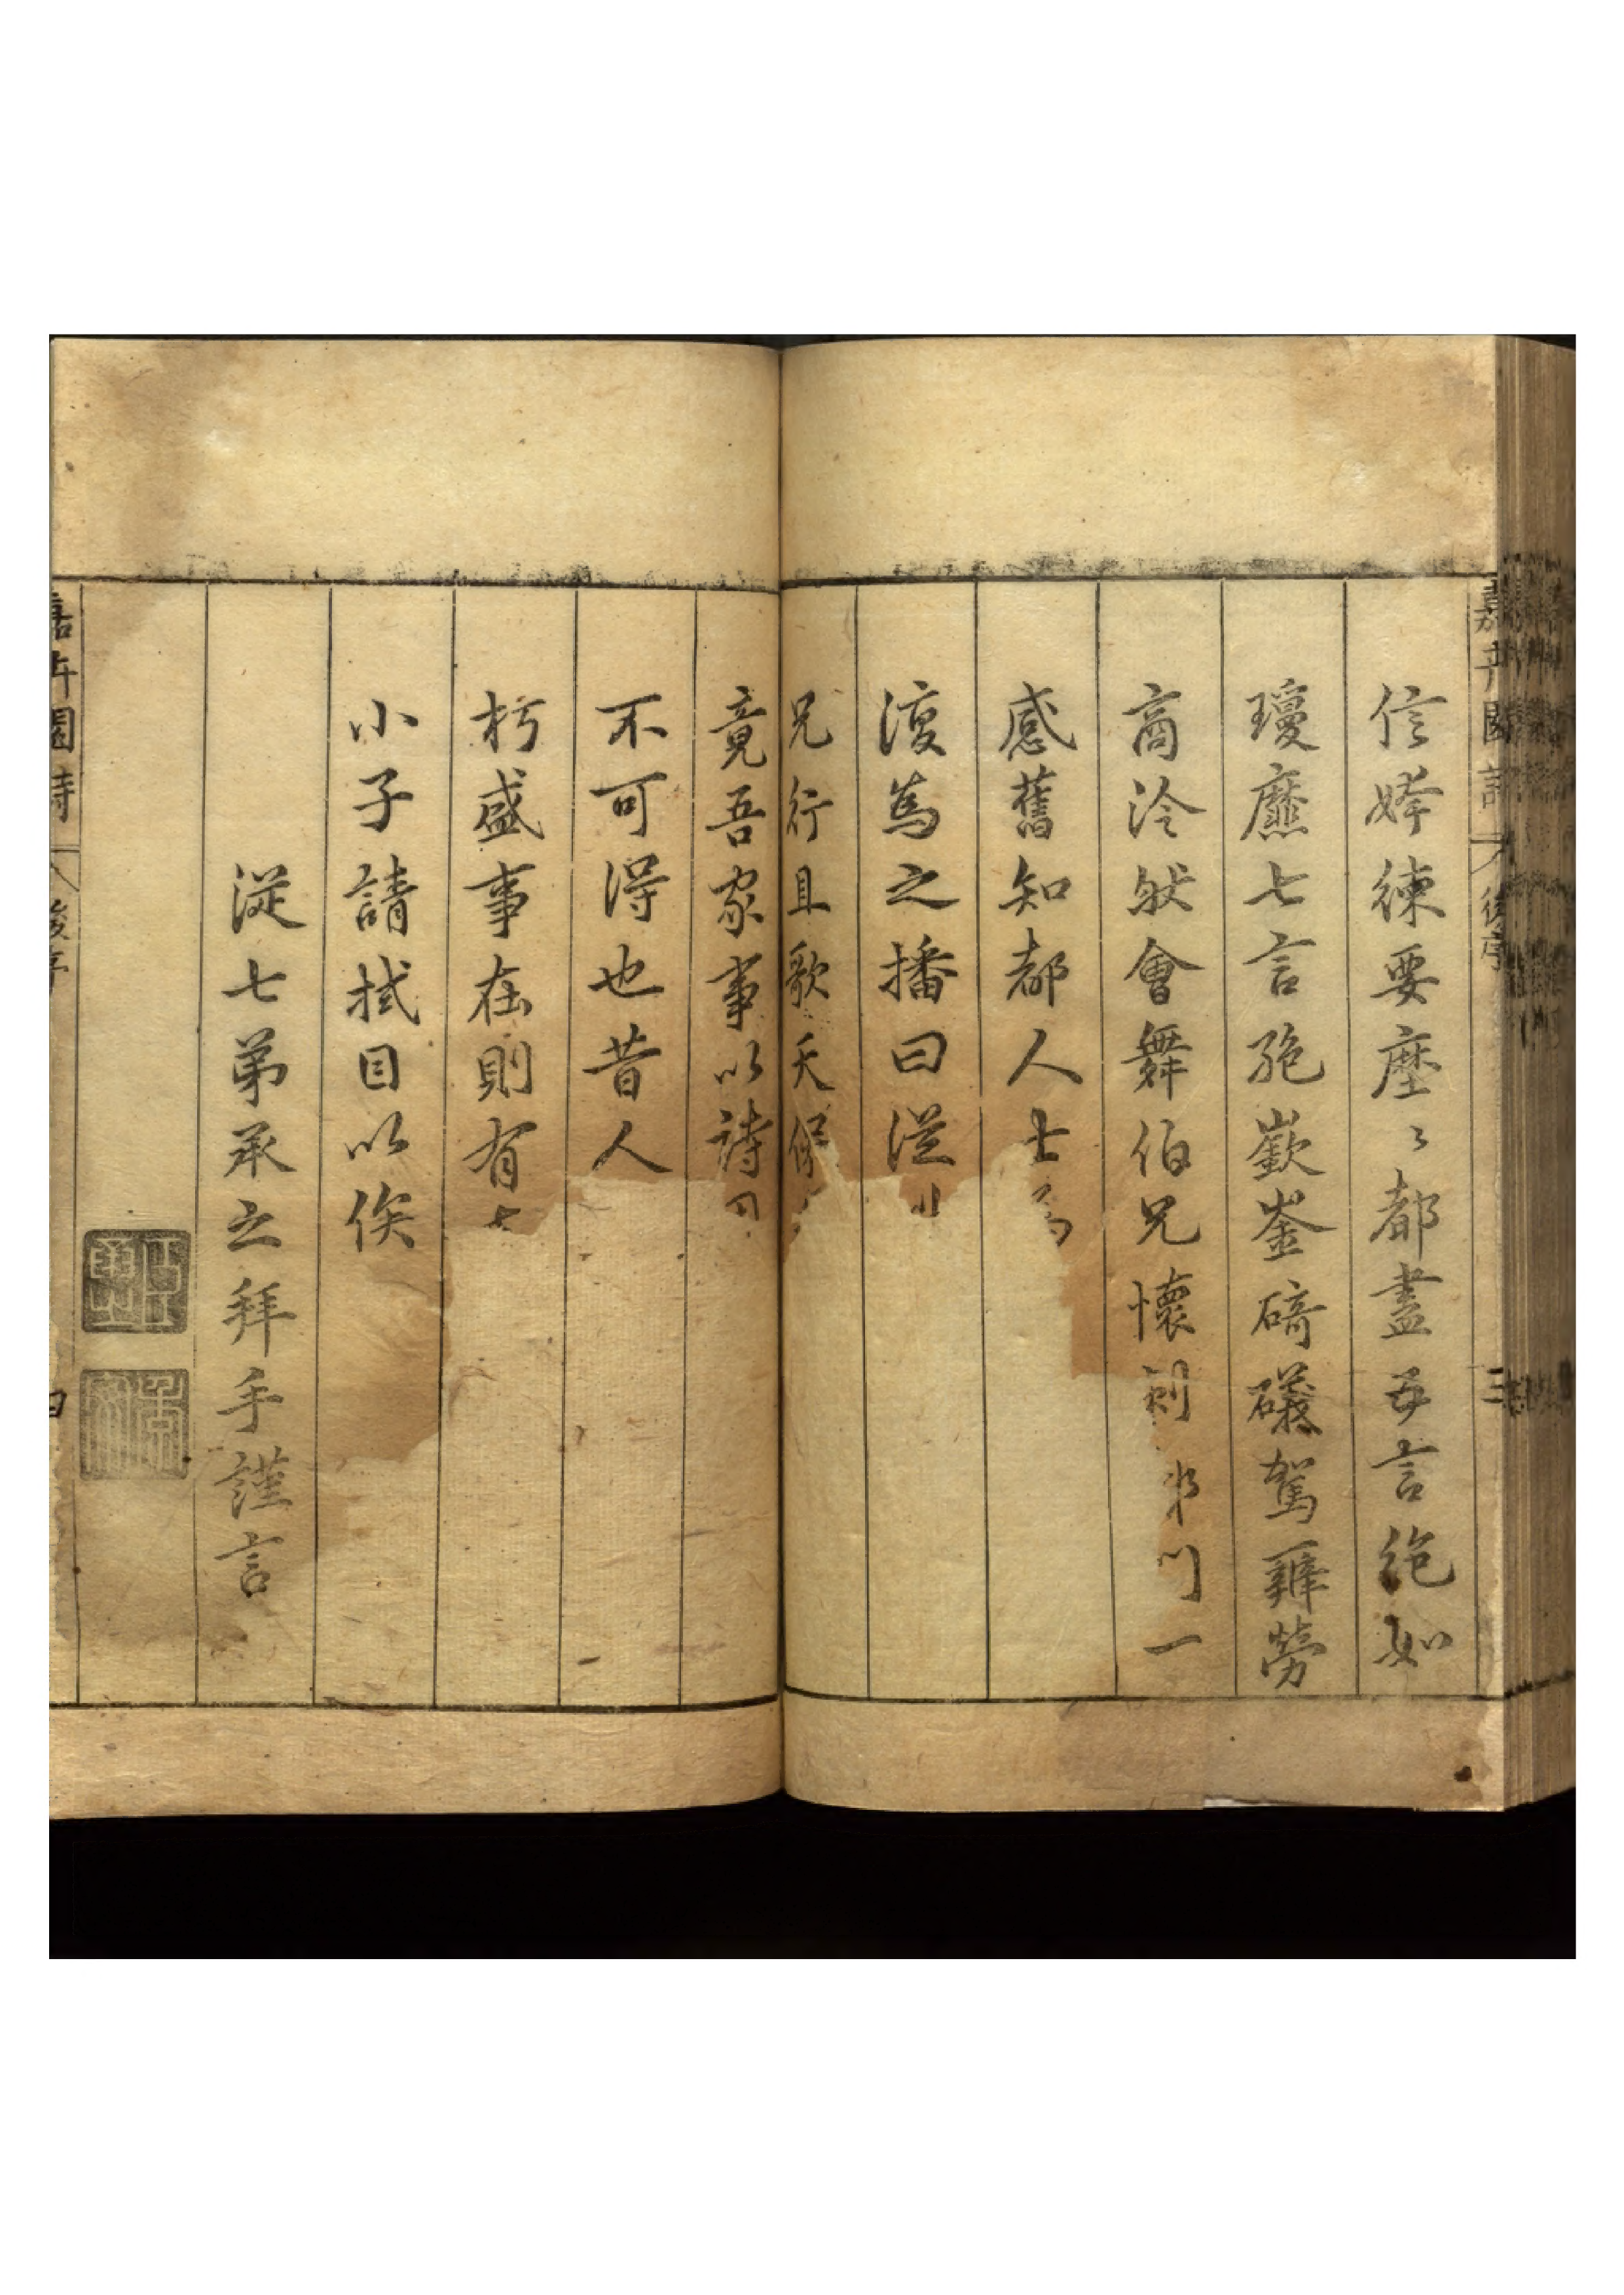 嘉卉園詩 後序 三
信姱練要塵〻都盡五言絶如
瓊靡七言絶嶔崟碕礒駕辭勞
商泠然會舞伯兄懷刺 門一
感舊知都人士
復為之播曰從
兄行且歌天保
竟吾家事以詩
不可得也昔人
朽盛事在則有
小子請拭目以俟
從七弟承之拜手謹言
嘉卉園詩 後序 四